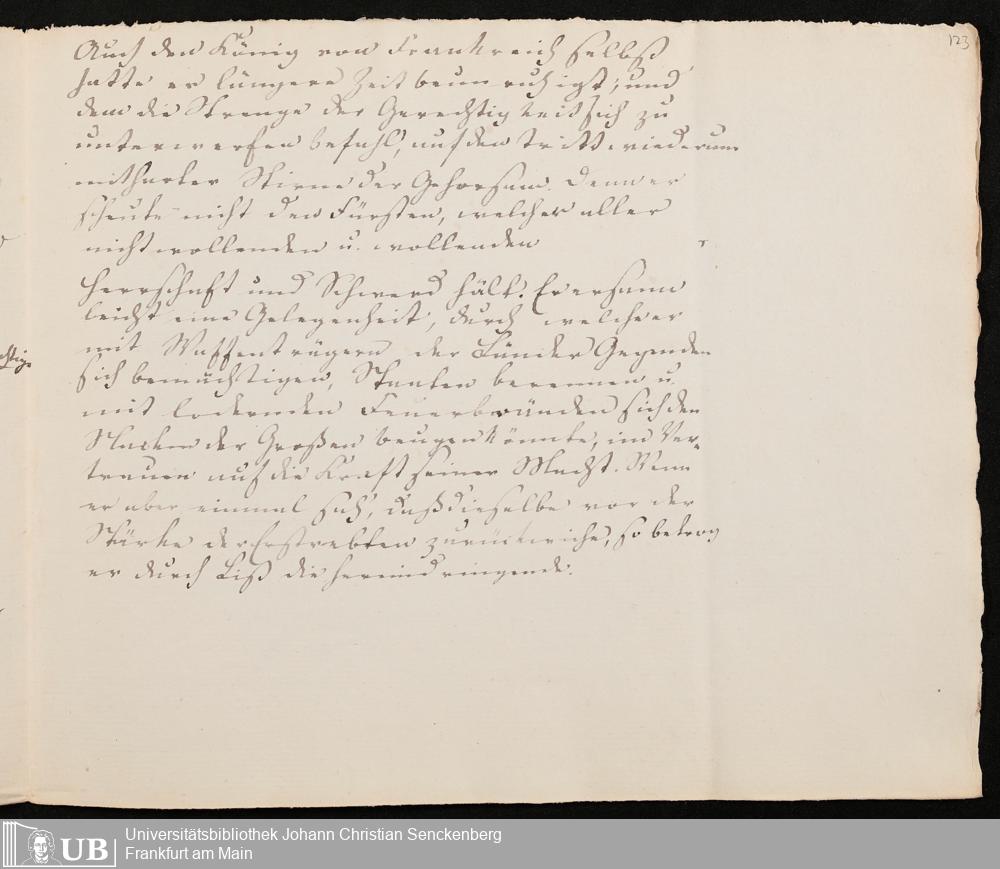 123
Auch den König von Frankreich selbst
hatte er längere Zeit beunruhigt, und
dem die Strenge der Gerechtigkeit sich zu
unterwerfen befahl, auf den tritt wiederum
mit harter Stirne der Gehorsam. Denn er
scheute nicht den Fürsten, welcher aller
nicht wollenden u. wollenden
Herrschaft und Schwerd hält. Er ersann
leicht eine Gelegenheit, durch welche er
mit Waffenträgern der Länder Gegenden
sich bemächtigen, Staaten berennen u.
mit lodernden Feuerbränden sich den
Nacken der Großen beugen könnte, im Ver-
trauen auf die Kraft seiner Macht. Wenn
er aber einmal sah, daß dieselbe vor der
Stärke der Erstrebten zurückwiche, so betrog
er durch List die hereindringende.
Universitätsbibliothek Johann Christian Senckenberg
Frankfurt am Main
UB